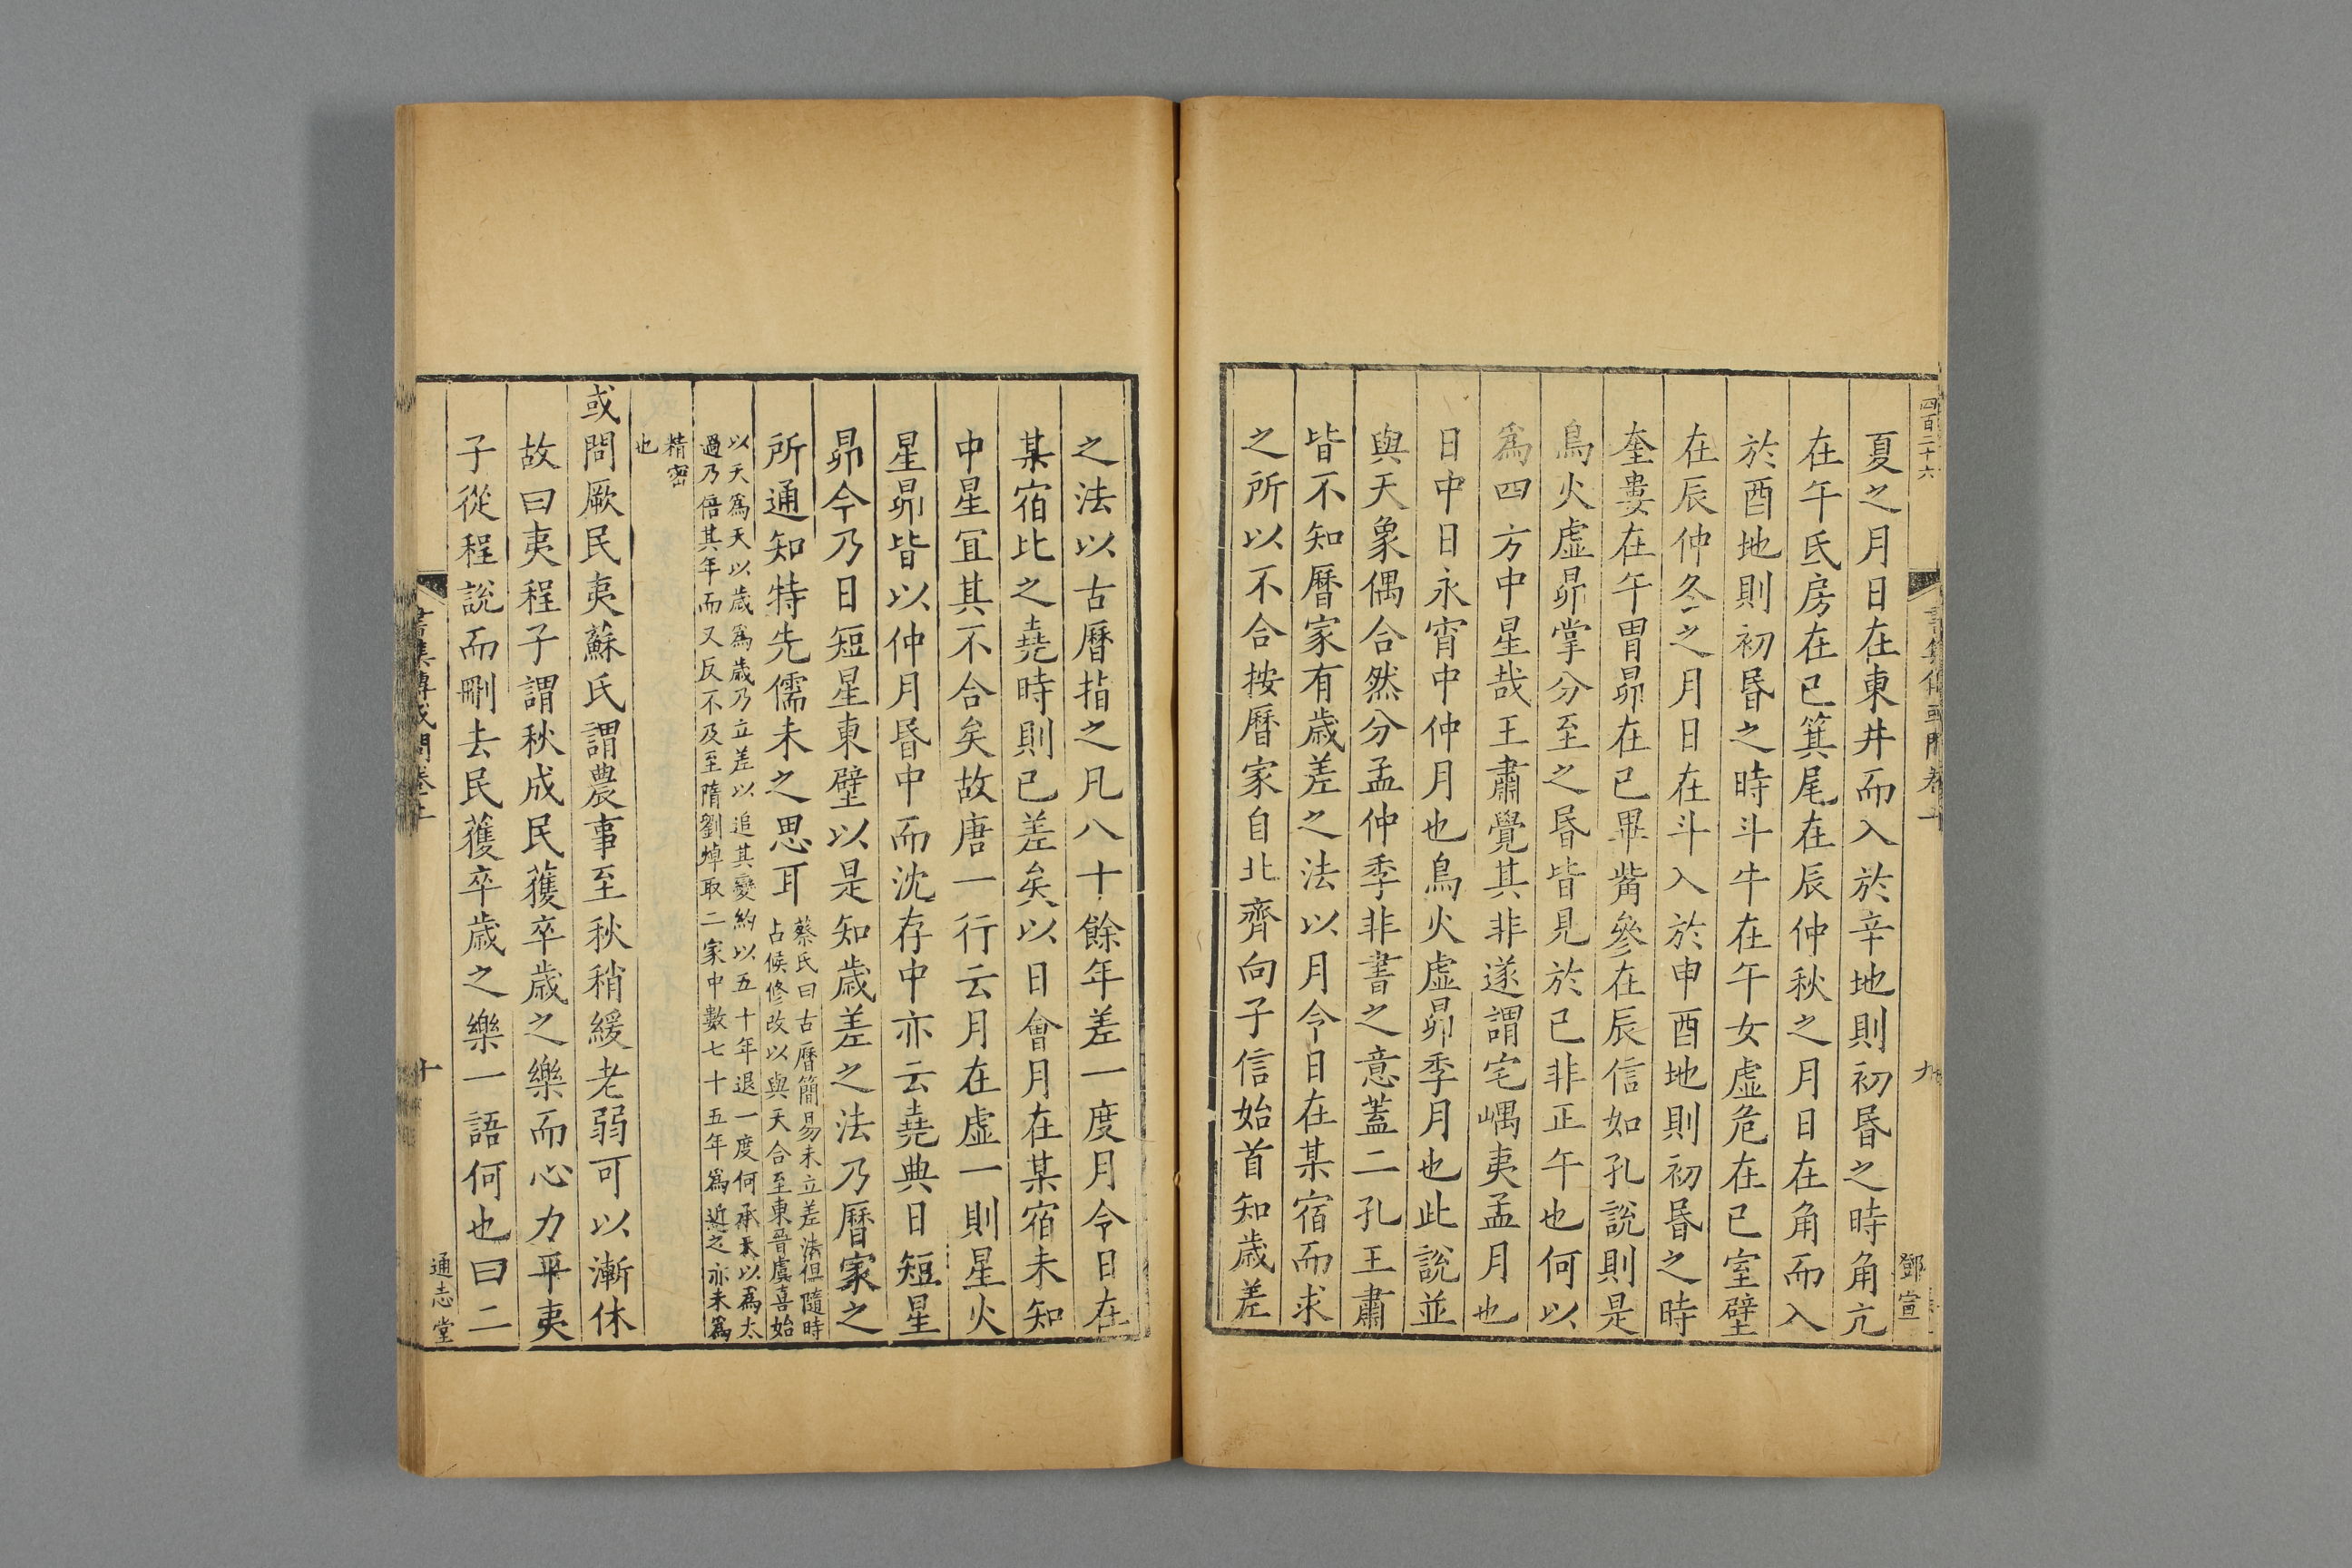 四百二十六
書集傳或問卷上
九
鄧宣
夏之月日在東井而入於辛地則初昬之時角亢
在午氐房在巳箕尾在辰仲秋之月日在角而入
於酉地則初昬之時斗牛在午女虛危在巳室壁
在辰仲冬之月日在斗入於申酉地則初昬之時
奎婁在午胃昴在巳畢觜參在辰信如孔說則是
鳥火虛昴掌分至之昬皆見於巳非正午也何以
爲四方中星哉王肅覺其非遂謂宅嵎夷孟月也
日中日永宵中仲月也鳥火虛昴季月也此說並
與天象偶合然分孟仲季非書之意蓋二孔王肅
皆不知曆家有歲差之法以月令日在某宿而求
之所以不合按曆家自北齊向子信始首知歲差
之法以古曆指之凡八十餘年差一度月令日在
某宿比之堯時則已差矣以日會月在某宿未知
中星宜其不合矣故唐一行云月在虛一則星火
星昴皆以仲月昬中而沈存中亦云堯典日短星
昴今乃日短星東壁以是知歲差之法乃曆家之
所通知特先儒未之思耳蔡氏曰古曆簡易未立差法但隨時
占候修改以與天合至東晉虞喜始
以天爲天以歲爲歲乃立差以追其變約以五十年退一度何承天以爲太
過乃倍其年而又反不及至隋劉焯取二家中數七十五年爲近之亦未爲
精密
也
或問厥民夷蘇氏謂農事至秋稍緩老弱可以漸休
故曰夷程子謂秋成民獲卒歲之樂而心力平夷
子從程說而刪去民獲卒歲之樂一語何也曰二
書集傳或問卷上
十
通志堂